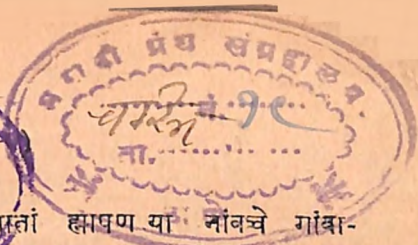 मराठी ग्रंथ संग्रहालय.
चरित्र नं.
ता.
ह्मापण या नांवचे गांवा-